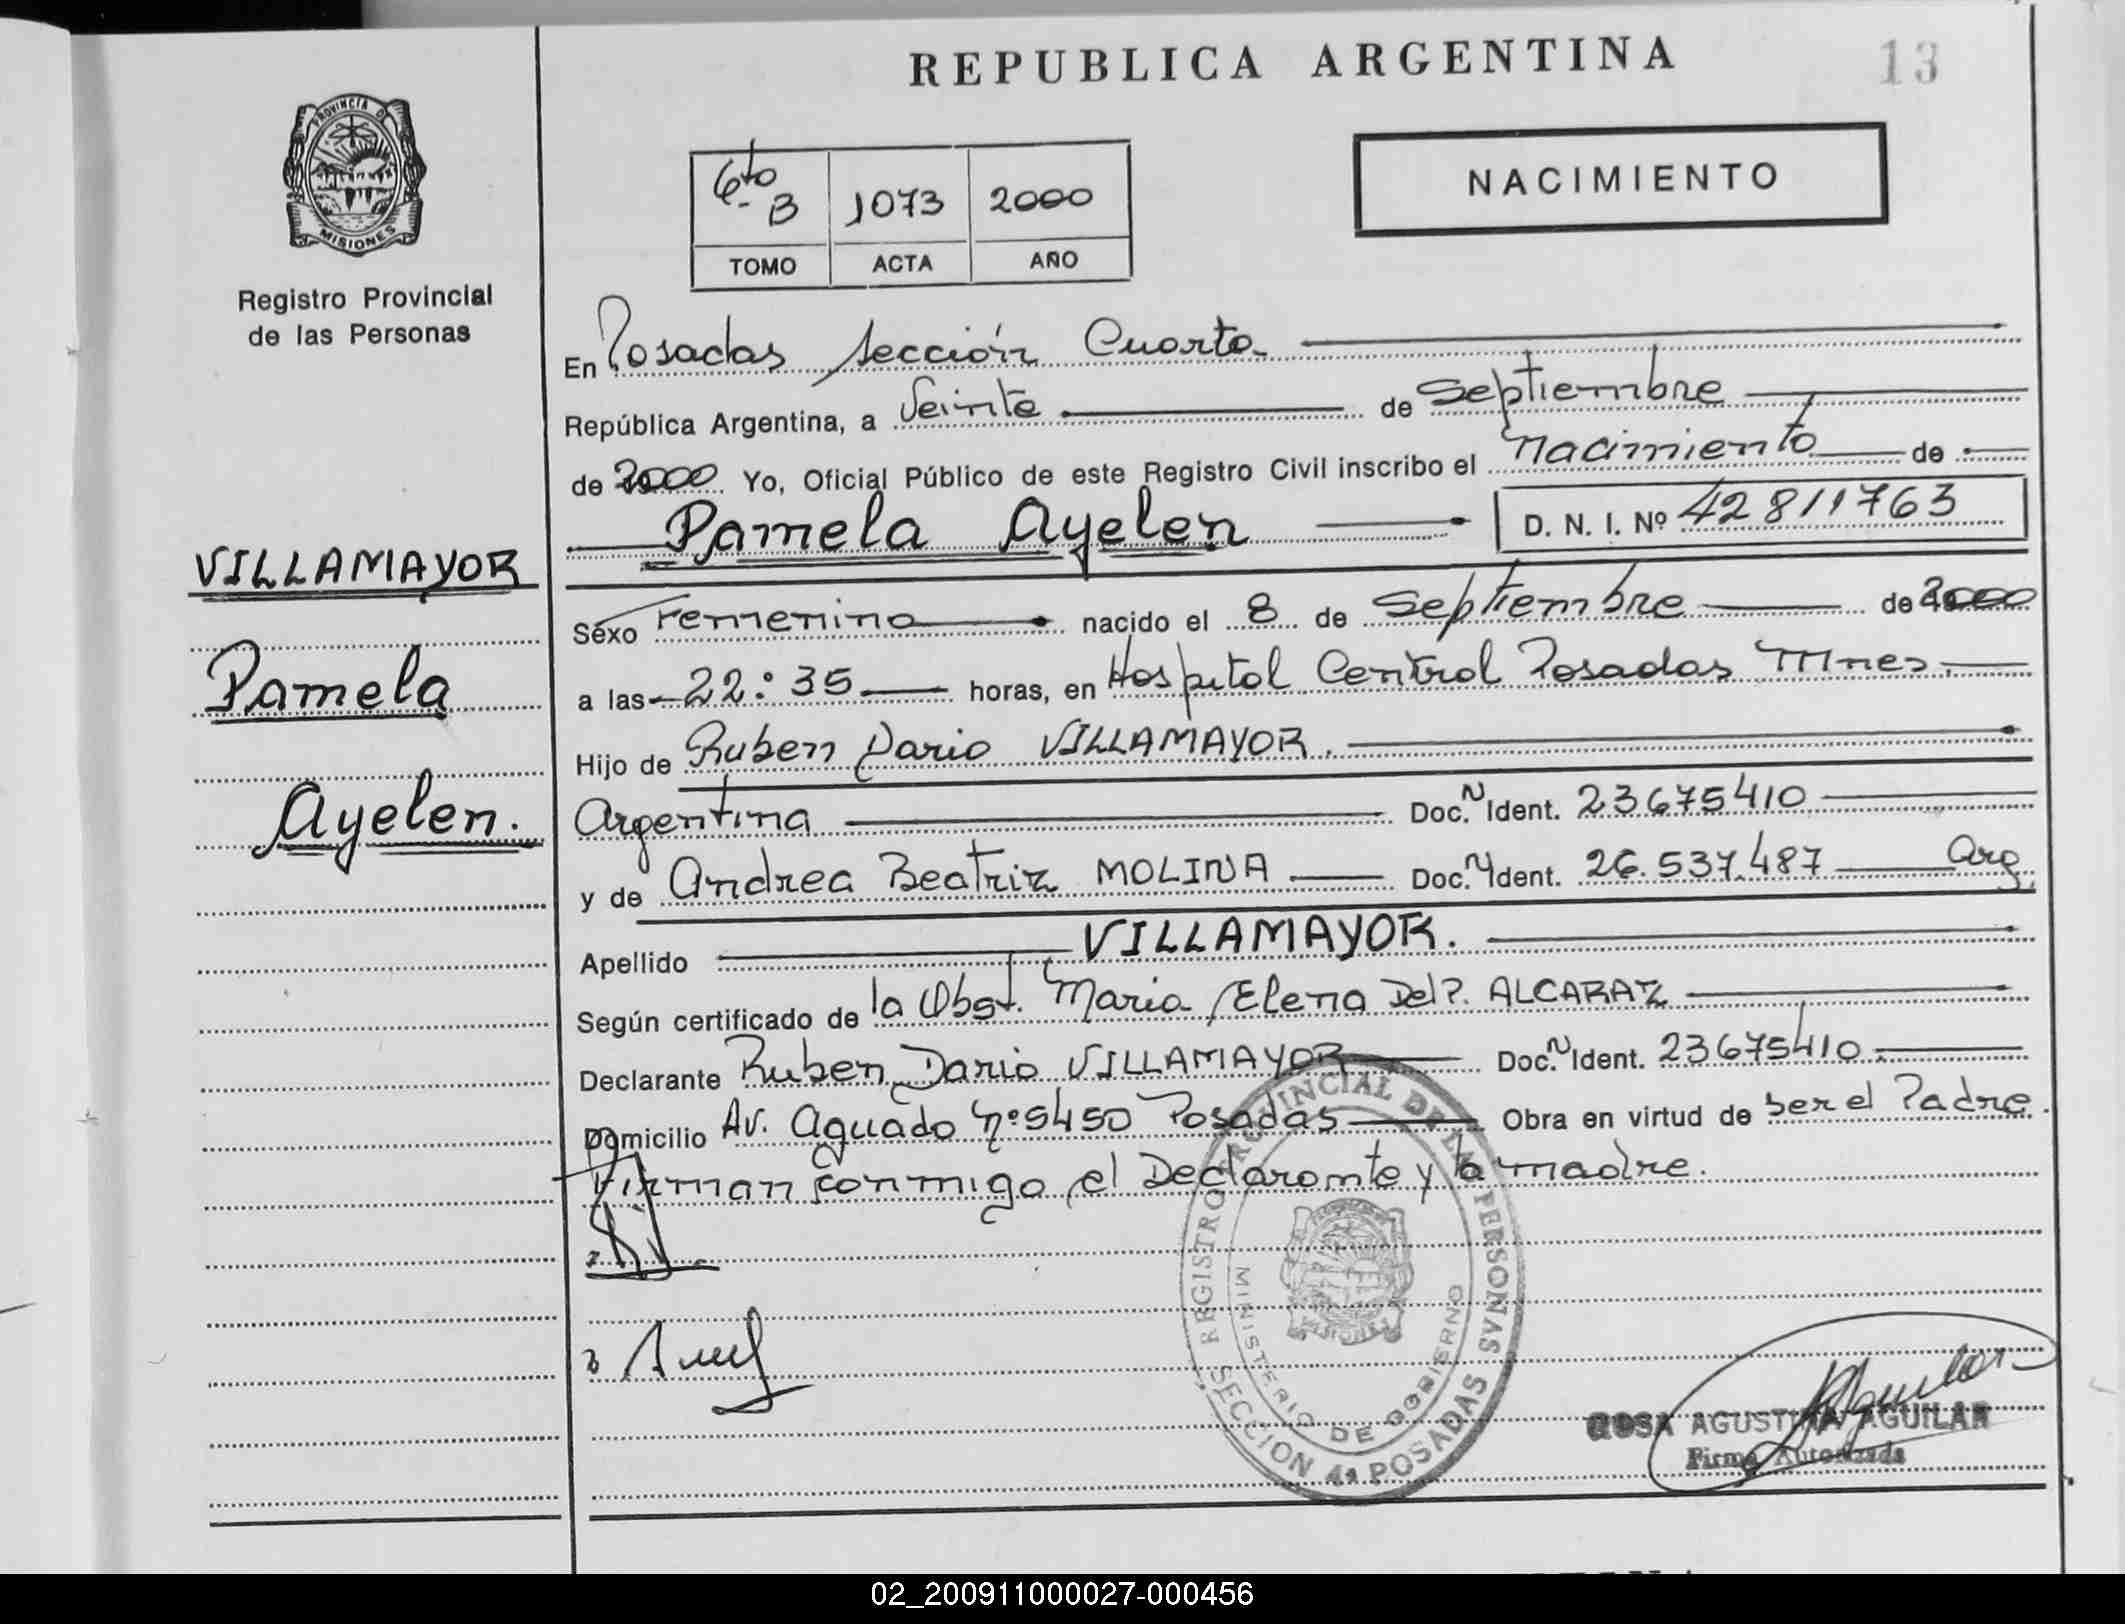 REPUBLICA ARGENTINA
13
PROVINCIA D
MISIONES
Registro Provincial
de las Personas
6to B 1073 2000
TOMO ACTA AÑO
NACIMIENTO
En Posadas Sección Cuarta
República Argentina, a Veinte de Septiembre
de 2000 Yo, Oficial Público de este Registro Civil inscribo el nacimiento de
Pamela Ayelen D. N. I. Nº 42811763
VILLAMAYOR
Pamela
Ayelen.
Sexo Femenino nacido el 8 de Septiembre de 2000
a las 22:35 horas, en Hospital Central Posadas Mnes.
Hijo de Ruben Dario VILLAMAYOR.
Argentina Doc. N Ident. 23675410
y de Andrea Beatriz MOLINA Doc. N Ident. 26.537.487 Arg.
Apellido VILLAMAYOR.
Según certificado de la Obst. Maria Elena Del P. ALCARAZ
Declarante Ruben Dario VILLAMAYOR Doc. N Ident. 23675410.
Domicilio Av. Aguado nº 5450 Posadas Obra en virtud de ser el Padre.
Firman conmigo el Declarante y la madre.
REGISTRO PROVINCIAL DE LAS PERSONAS
MINISTERIO DE GOBIERNO
MISIONES
SECCION 4ª POSADAS
ROSA AGUSTINA AGUILAR
Firma Autorizada
02_200911000027-000456